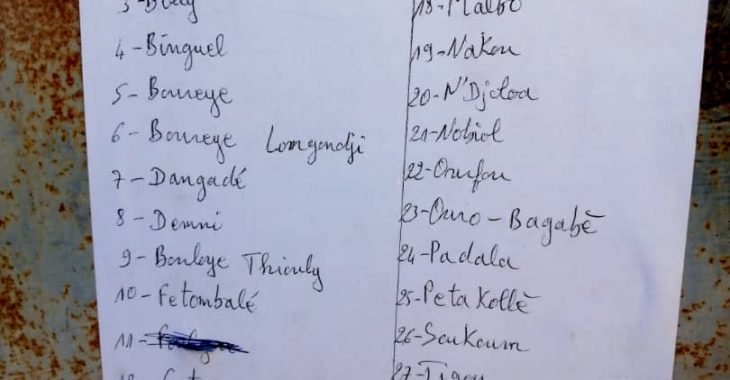 4-Binguel
5-Boureye
6-Boureye Longondji
7-Dangadé
8-Demni
9-Bouloye Thiouly
10-Fetombalé
11-
18-Malbo
19-Nakou
20-N'Djoloa
21-Nobiol
22-Ourfou
23-Ouro-Bagabè
24-Padala
25-Peta Kollè
26-Soukoum
27-